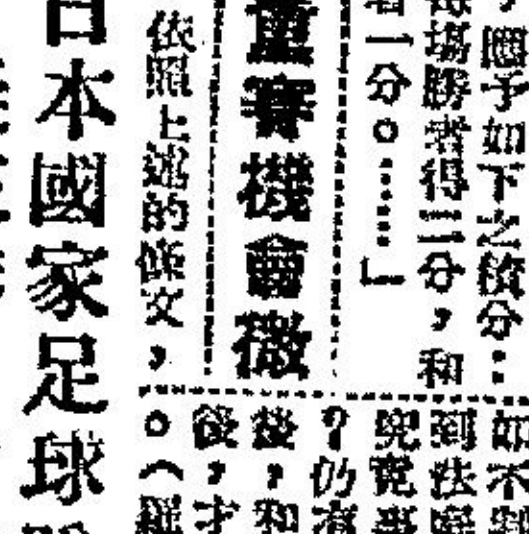 應予如下之積分：
每場勝者得二分，和
者一分。……」
重賽機會微
依照上述的條文，
日本國家足球
如不到
到法庭
究竟事
？仍有
後，和
後，才
。（羅